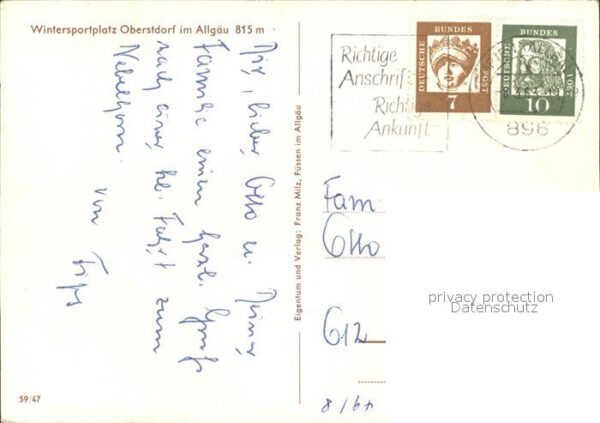 Wintersportplatz Oberstdorf im Allgäu 815 m
Dir, lieber Otto u. Deiner
Familie einen herzl. Gruß
nach einer kl. Fahrt zum
Nebelhorn.
von Fips
Eigentum und Verlag: Franz Milz, Füssen im Allgäu
59/47
Richtige
Anschrift
Richtige
Ankunft
DEUTSCHE BUNDES POST
7
DEUTSCHE BUNDES POST
10
896
Fam
Otto
612
privacy protection
Datenschutz